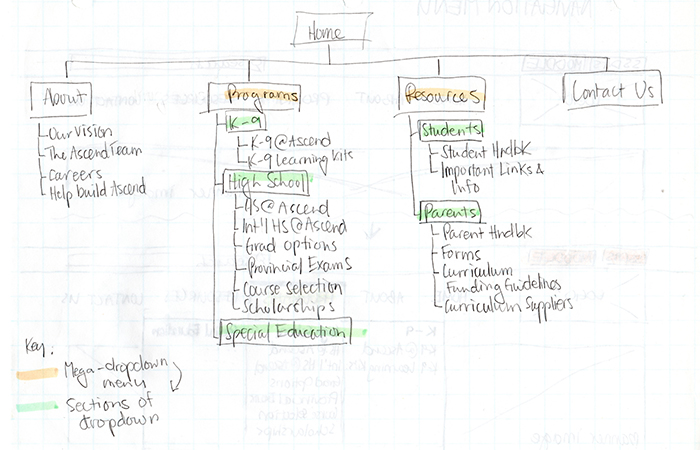 Home
About
Our Vision
The Ascend Team
Careers
Help build Ascend
Programs
K-9
K-9 @ Ascend
K-9 Learning Kits
High School
HS @ Ascend
Int'l HS @ Ascend
Grad Options
Provincial Exams
Course Selection
Scholarships
Special Education
Resources
Students
Student Hndbk
Important Links &
Info
Parents
Parent Hndbk
Forms
Curriculum
Funding Guidelines
Curriculum Suppliers
Contact Us
Key:
Mega-dropdown
menu
Sections of
dropdown